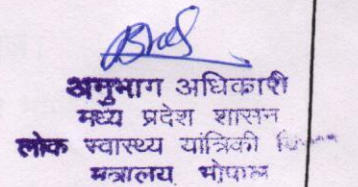 अनुभाग अधिकारी
मध्य प्रदेश शासन
लोक स्वास्थ्य यांत्रिकी
मंत्रालय भोपाल